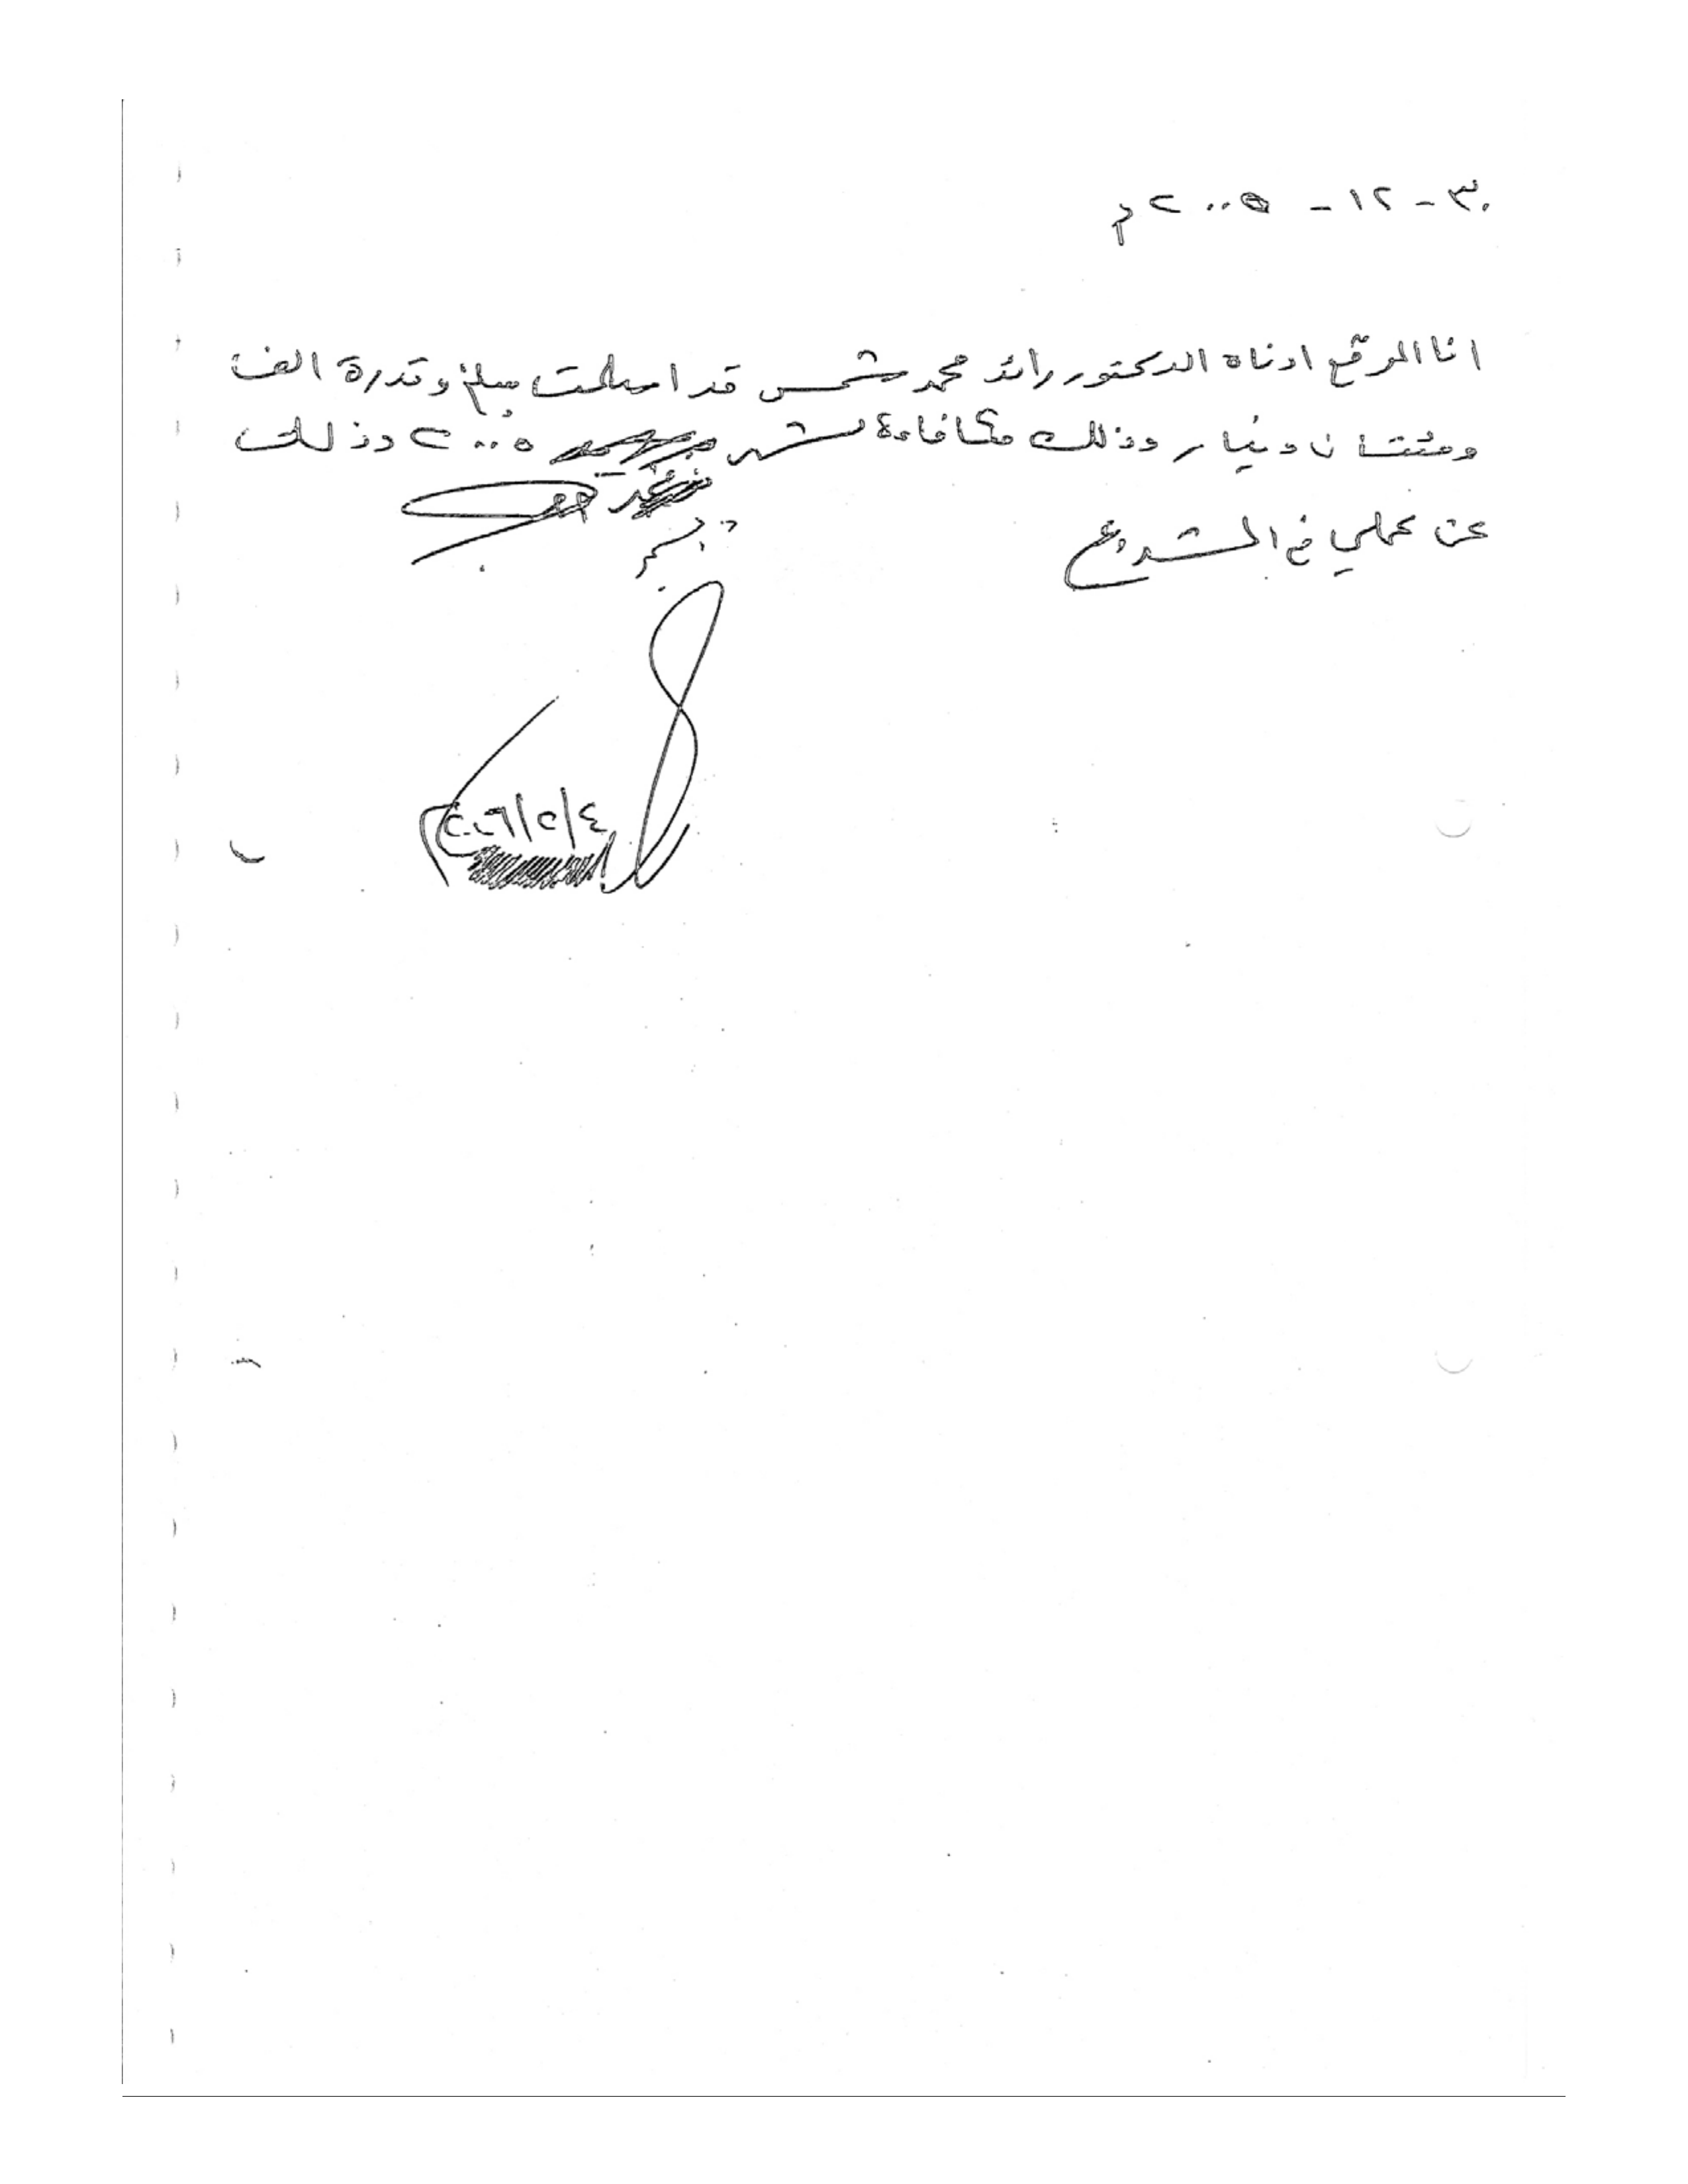 ٣٠ - ١٢ - ٢٠٠٥م
انا الموقع ادناه الدكتور رائد محمد شمس قد استلمت مبلغ وقدرة الف
ومئتان دينار وذلك مكافاءة لشهر ٢٠٠٥ وذلك
عن عملي في المشروع
٢٠٠٦/٢/٤